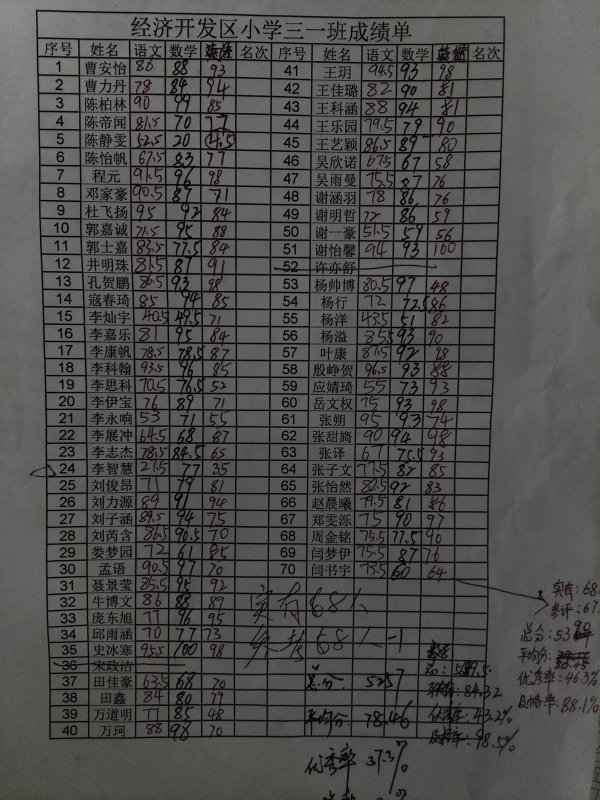 经济开发区小学三一班成绩单
序号 姓名 语文 数学 名次 序号 姓名 语文 数学 名次
1 曹安怡 86 88 93 41 王玥 94.5 93 98
2 曹力丹 78 84 94 42 王佳璐 82 90 81
3 陈柏林 90 99 85 43 王科涵 88 94 81
4 陈帝闻 81.5 70 77 44 王乐园 79.5 79 90
5 陈静雯 52.5 20 45 王艺颖 86.5 89 80
6 陈怡帆 67.5 83 77 46 吴欣诺 67.5 67 58
7 程元 91.5 96 98 47 吴雨曼 75.5 87 76
8 邓家豪 90.5 87 71 48 谢涵羽 78 86 76
9 杜飞扬 95 92 84 49 谢明哲 72 86 59
10 郭嘉诚 71.5 95 88 50 谢一豪 51.5 59 56
11 郭士嘉 83.5 77.5 84 51 谢怡馨 94 93 100
12 井明珠 81.5 87 91 52 许亦舒
13 孔贺鹏 86.5 93 98 53 杨帅博 80.5 97 48
14 寇春琦 85 94 85 54 杨行 72 72.5 86
15 李灿宇 40.5 49.5 71 55 杨洋 43.5 51 82
16 李嘉乐 81 95 84 56 杨溢 85.5 93 90
17 李康帆 78.5 78.5 87 57 叶康 87.5 92 98
18 李科翰 93.5 96 85 58 殷峥贺 96.5 93 88
19 李思科 70.5 76.5 52 59 应婧琦 55 73 93
20 李伊宝 76 89 71 60 岳文权 75 93 98
21 李永响 53 71 55 61 张朔 95 93 74
22 李展冲 64.5 68 87 62 张甜旖 90 94 98
23 李志杰 78.5 84.5 65 63 张译 67 75.5 93
24 李智慧 21.5 77 35 64 张子文 77.5 82 85
25 刘俊昂 71 79 81 65 张怡然 80.5 92 83
26 刘力源 89 91 94 66 赵晨曦 79.5 81 86
27 刘子涵 89.5 94 75 67 郑雯泺 75 90 97
28 刘芮含 86.5 90.5 70 68 周金铭 75.5 77.5 90
29 娄梦园 72 61 85 69 闫梦伊 75.5 87 76
30 孟语 90.5 97 70 70 闫书宇 73.5 60 64
31 聂景莹 85.5 95 92
32 牛博文 86 83 89 实有68人
33 庞东旭 77 96 95
34 邱雨涵 70 77 73 参考68人
35 史冰寒 95.5 100 98
36 宋政洁
37 田佳豪 63.5 68 70 总分 5257
38 田鑫 84 80 79
39 万道明 77 85 48 平均分 78.46
40 万珂 88 98 70
优秀率 37.3%
平均 84.32
优秀率 43.2%
及格率 98.5%
实有:68
参评:67
总分:
平均分:
优秀率:46.3%
及格率:88.1%